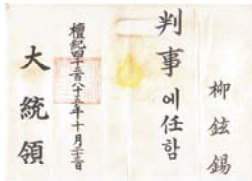 柳鉉錫
判事에任함
檀紀四千二百八十五年十月
大統領